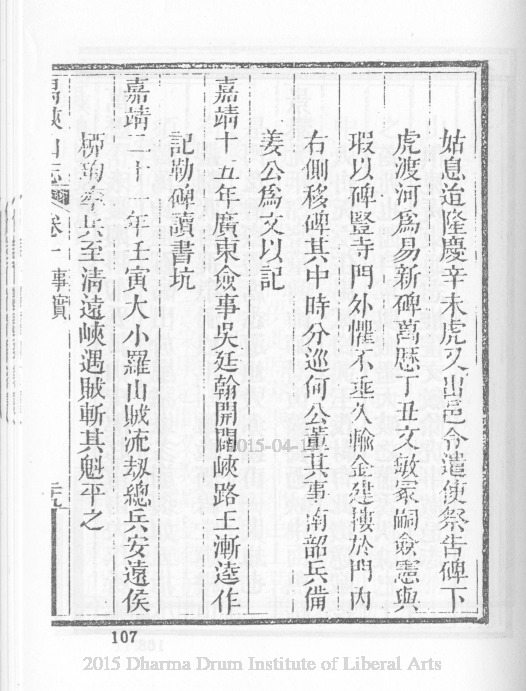 姑息迨隆慶辛未虎又出邑令遣使祭告碑下
虎渡河爲易新碑萬歷丁丑文敏冢嗣僉憲與
瑕以碑豎寺門外懼不垂久輸金建樓於門內
右側移碑其中時分巡何公董其事南韶兵備
姜公爲文以記
嘉靖十五年廣東僉事吳廷翰開闢峽路王漸逵作
記勒碑讀書坑
嘉靖二十一年壬寅大小羅山賊流刼總兵安遠侯
柳珣奉兵至淸遠峽遇賊斬其魁平之
峽山志 卷一 事實
107
2015-04-1
2015 Dharma Drum Institute of Liberal Arts